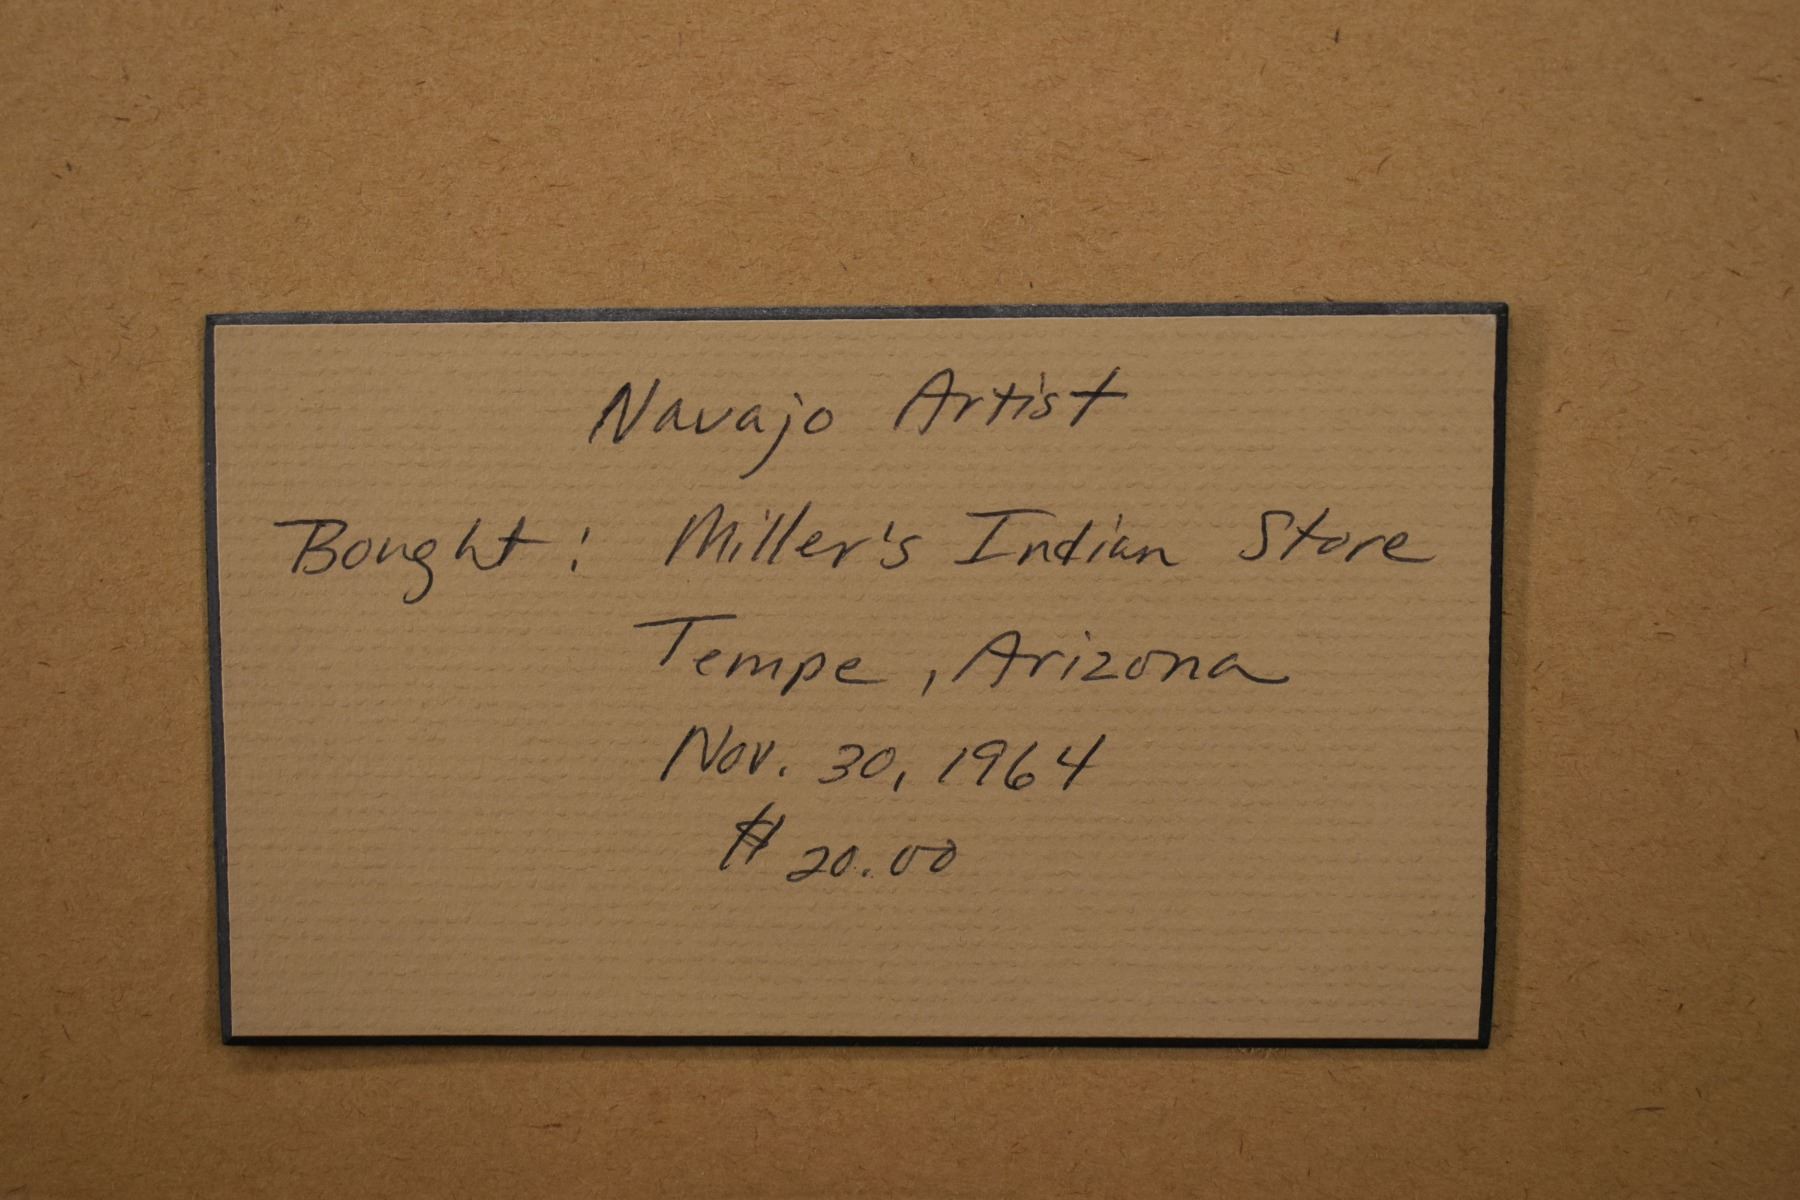 Navajo Artist
Bought: Miller's Indian Store
Tempe, Arizona
Nov. 30, 1964
$20.00